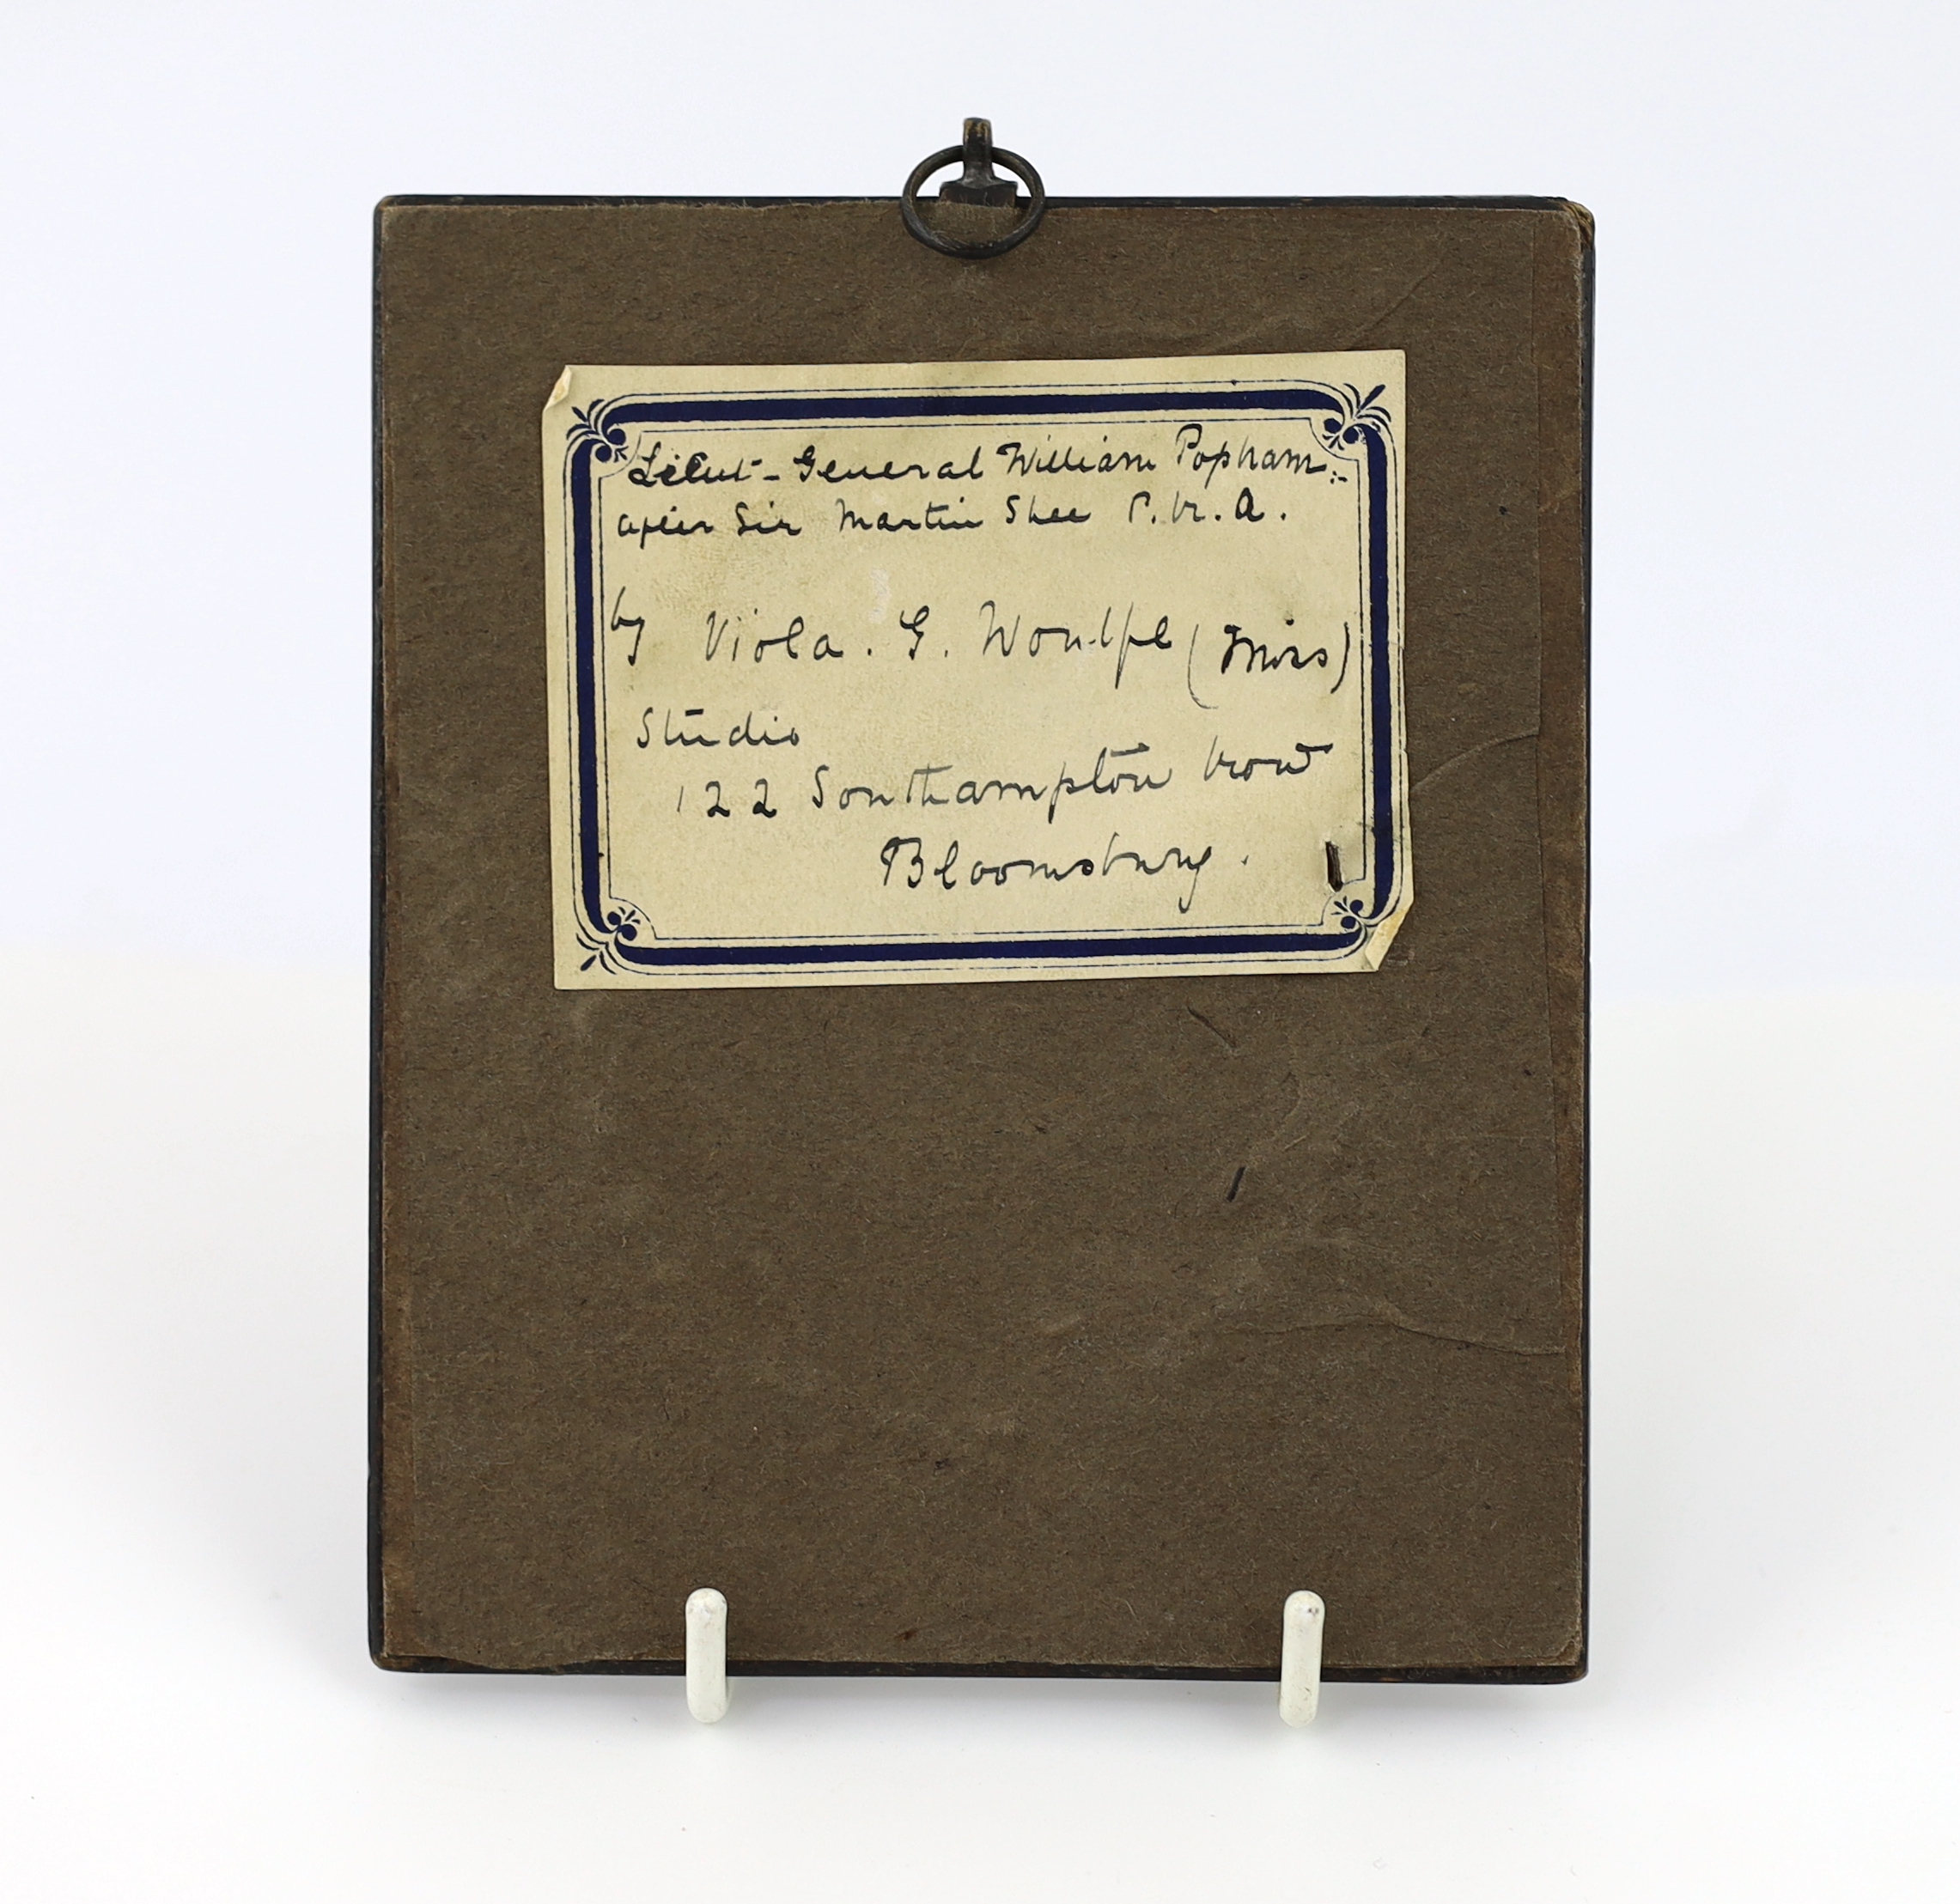 Lieut - General William Popham :-
after Sir Martin Shee P.R.A.
by Viola. G. Woulfe (Miss)
Studio
122 Southampton Row
Bloomsbury.